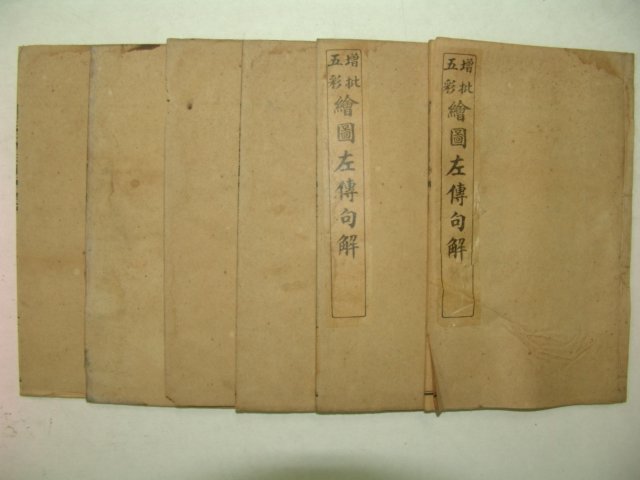 增批五彩繪圖左傳句解
增批五彩繪圖左傳句解